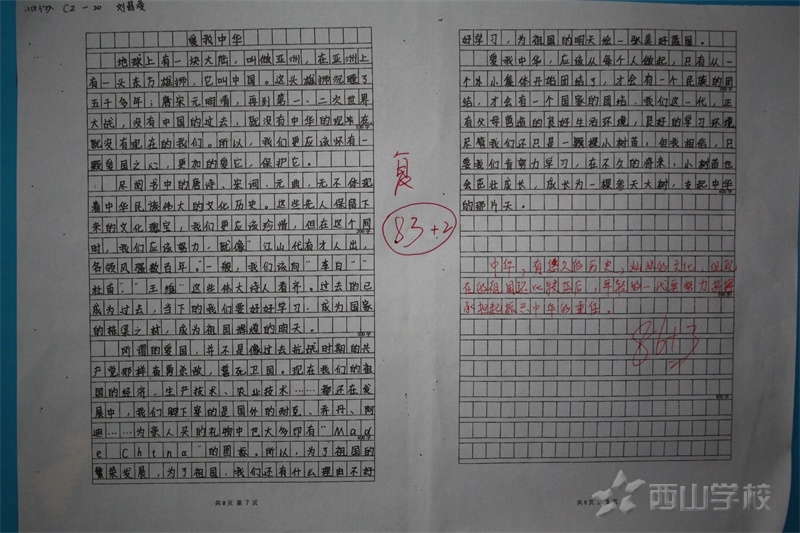 C2-20
爱我中华
地球上有一块大陆，叫做亚洲，在亚洲上
有一头东方雄狮，它叫中国。这头雄狮沉睡了
五千多年；唐宋元明清，再到第一、二次世界
大战，没有中国的过去，就没有中华的现在
就没有现在的我们。所以，我们更应该怀有一
颗爱国之心，更加的爱它，保护它。
尽阅书中的唐诗、宋词、元曲，无不体现
着中华民族伟大的文化历史。这些先人保留下
来的文化瑰宝，我们更应该珍惜，但在这个同
时，我们应该努力，就像“江山代有才人出，
各领风骚数百年。”一般，我们该向“李白”“
杜甫”“王维”这些伟大诗人看齐。过去的已
成为过去，当下的我们要好好学习，成为国家
的栋梁之材，成为祖国辉煌的明天。
所谓的爱国，并不是像过去抗战时期的共
产党那样奋勇杀敌，誓死卫国。现在我们的祖
国的经济、生产技术、农业技术……都还在发
展中，我们脚下穿的是国外的耐克、乔丹、阿
迪……为亲人买的礼物中也大多印有“Mad
e China”的图标。所以，为了祖国的
繁荣发展，为了祖国，我们还有什么理由不好
共8页 第7页
复
83+2
好学习，为祖国的明天绘一张美好蓝图。
爱我中华，应该从每个人做起，只有从一
个个小集体开始团结了，才会有一个民族的团
结，才会有一个国家的团结。我们这一代，正
有父母营造的良好生活环境，良好的学习环境
尽管我们还只是一颗棵小树苗，但我相信，只
要我们肯努力学习，在不久的将来，小树苗也
会茁壮成长，成长为一棵参天大树，支起中华
的那片天。
中华，有悠久的历史，灿烂的文化，但现
在的祖国还比较落后，年轻的一代要努力
承担起振兴中华的重任。
86+3
共8页
西山学校